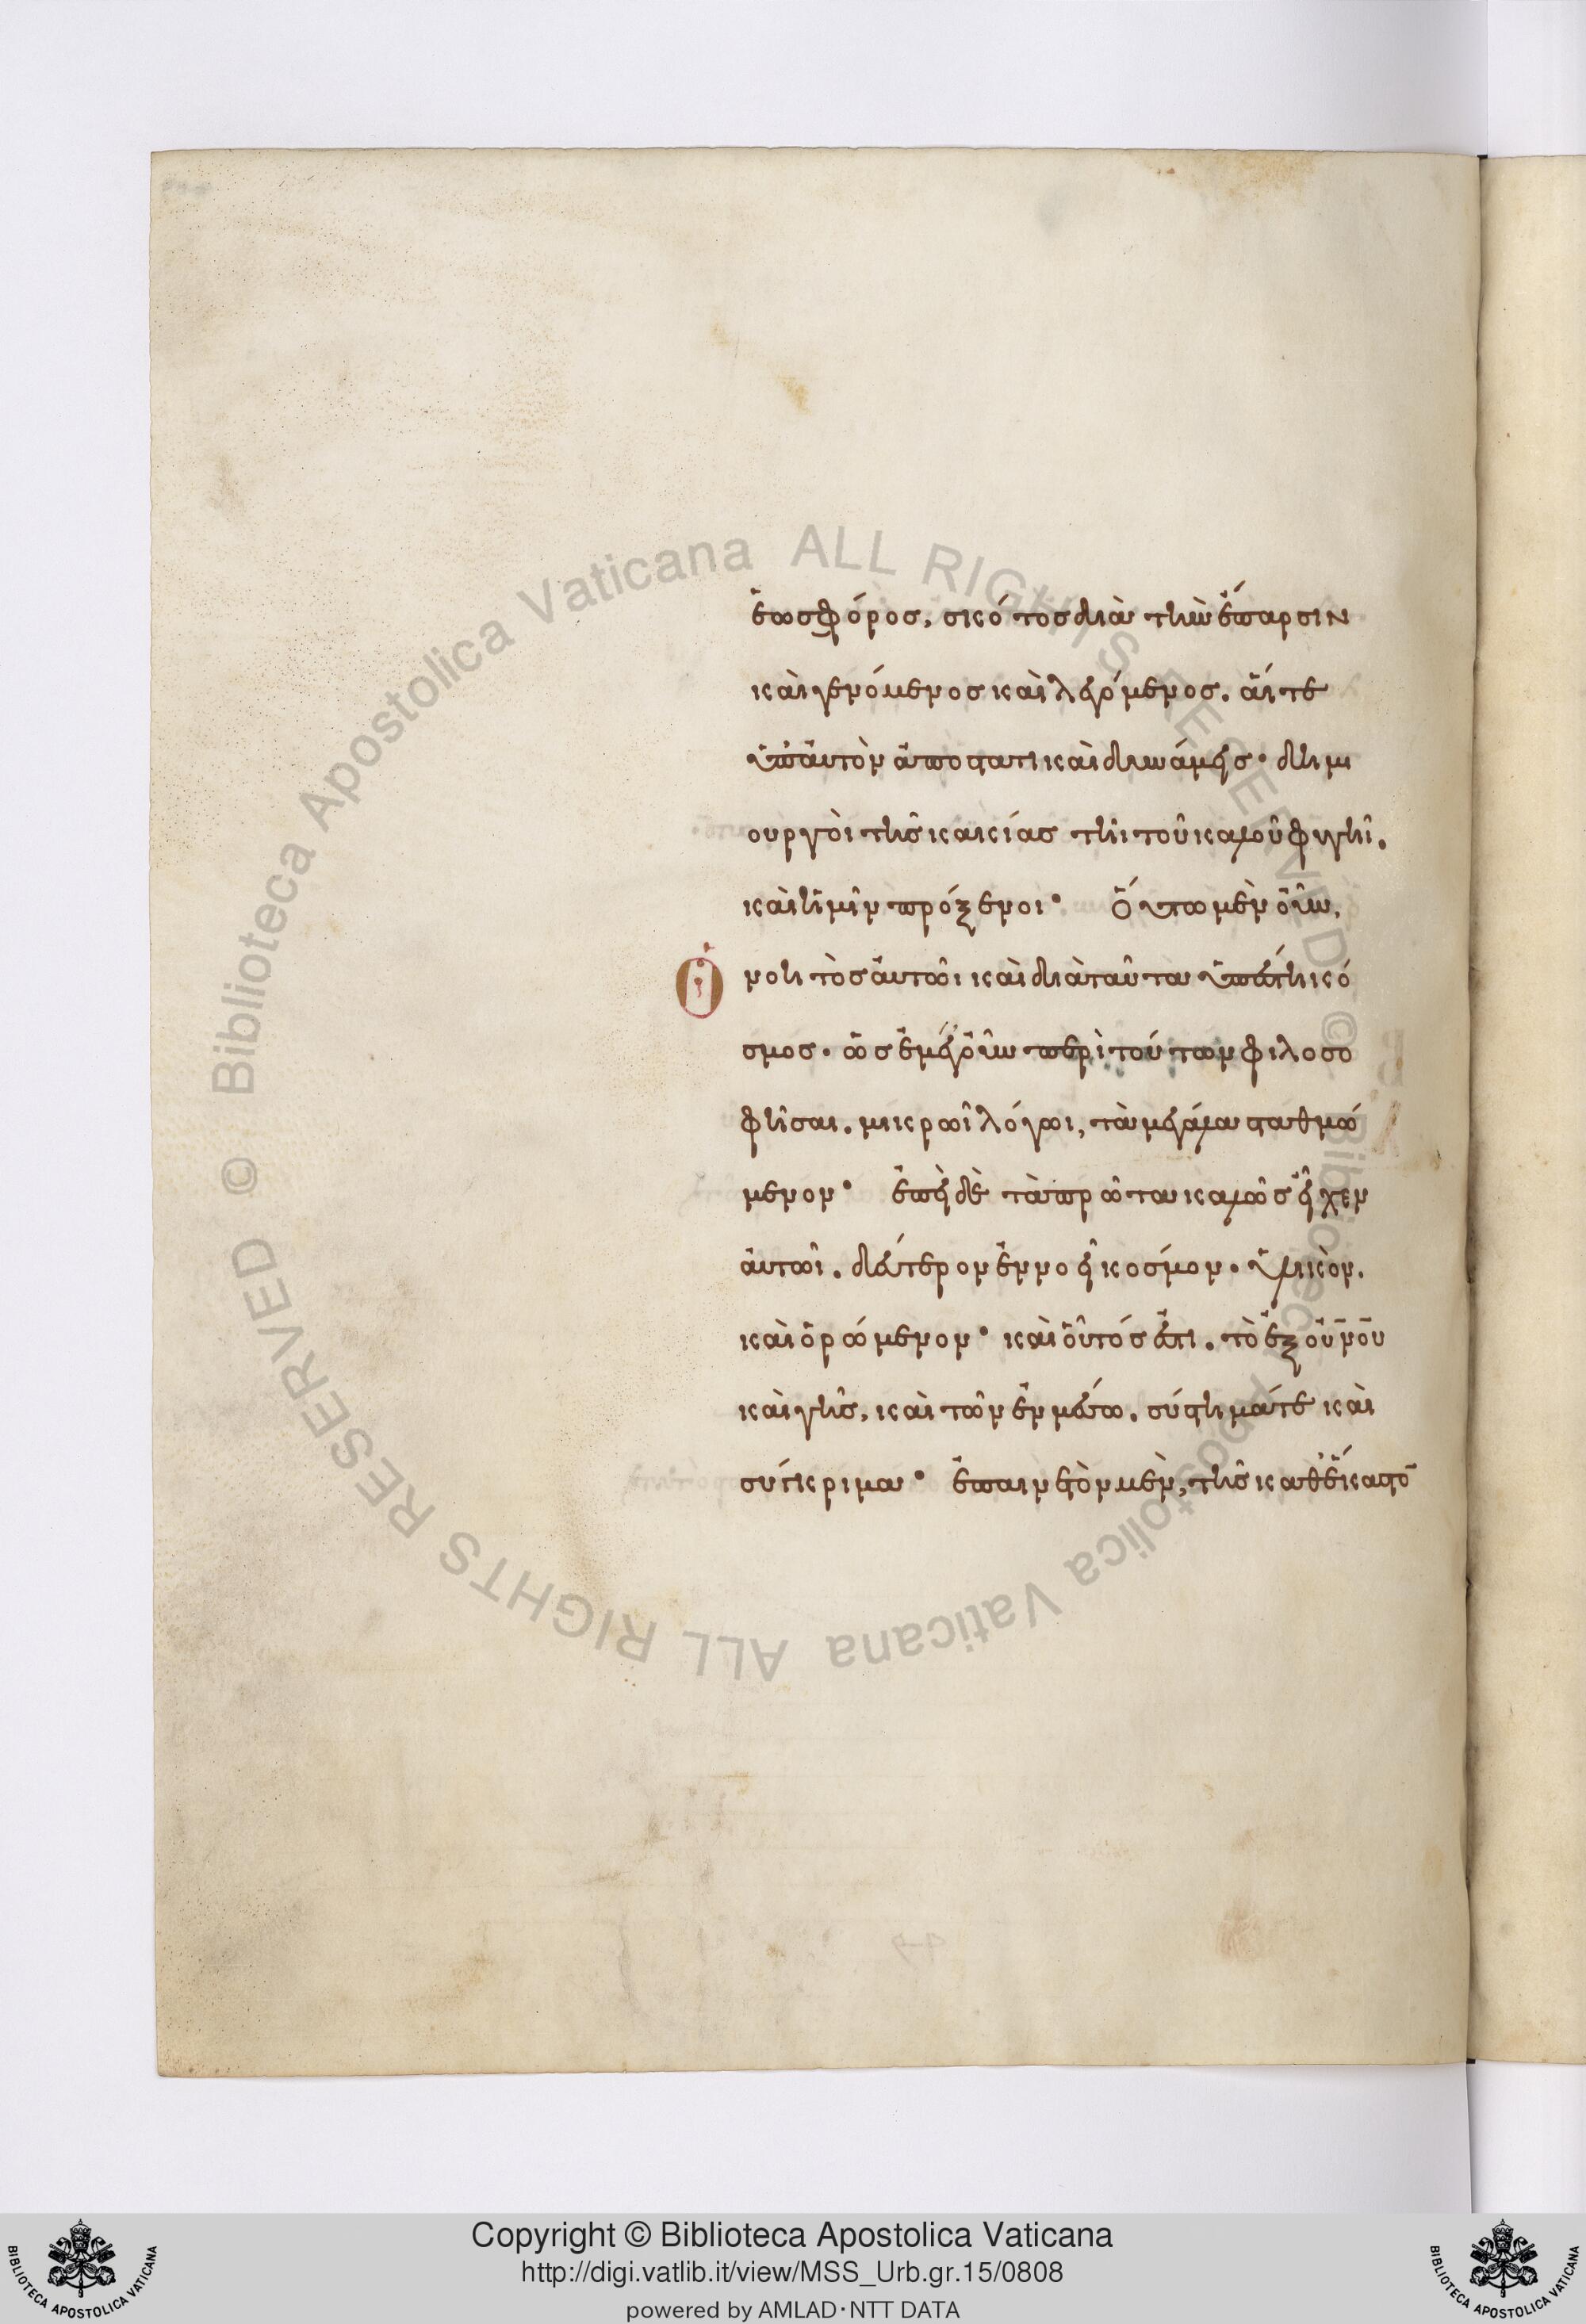 ἑωσφόρος, σκότος διὰ τὴν ἔπαρσιν
καὶ γενόμενος καὶ λεγόμενος. αἵ τε
ὑπ' αὐτὸν ἀποστατικαὶ δυνάμεις· δημι
ουργοὶ τῆς κακίας τῆι τοῦ καλοῦ φυγῆι.
καὶ ἡμῖν πρόξενοι· Οὕτω μὲν οὖν,
Ὁ νοητὸς αὐτῶι καὶ διὰ ταῦτα ὑπέστη κό
σμος. ὡς ἐμὲ γοῦν περὶ τούτων φιλοσο
φῆσαι. μικρῶι λόγωι, τὰ μεγάλα σταθμώ
μενον· ἐπεὶ δὲ τὰ πρῶτα καλῶς εἶχεν
αὐτῶι. δεύτερον ἐννοεῖ κόσμον. ὑλικὸν.
καὶ ὁρώμενον· καὶ οὗτός ἐστι. τὸ ἐξ οὐνοῦ
καὶ γῆς, καὶ τῶν ἐν μέσω. σύστημά τε καὶ
σύγκριμα· ἐπαινετὸν μὲν, τῆς καθ' ἕκαστον
Copyright © Biblioteca Apostolica Vaticana
http://digi.vatlib.it/view/MSS_Urb.gr.15/0808
powered by AMLAD·NTT DATA
BIBLIOTECA APOSTOLICA VATICANA
BIBLIOTECA APOSTOLICA VATICANA
© Biblioteca Apostolica Vaticana ALL RIGHTS RESERVED © Biblioteca Apostolica Vaticana ALL RIGHTS RESERVED